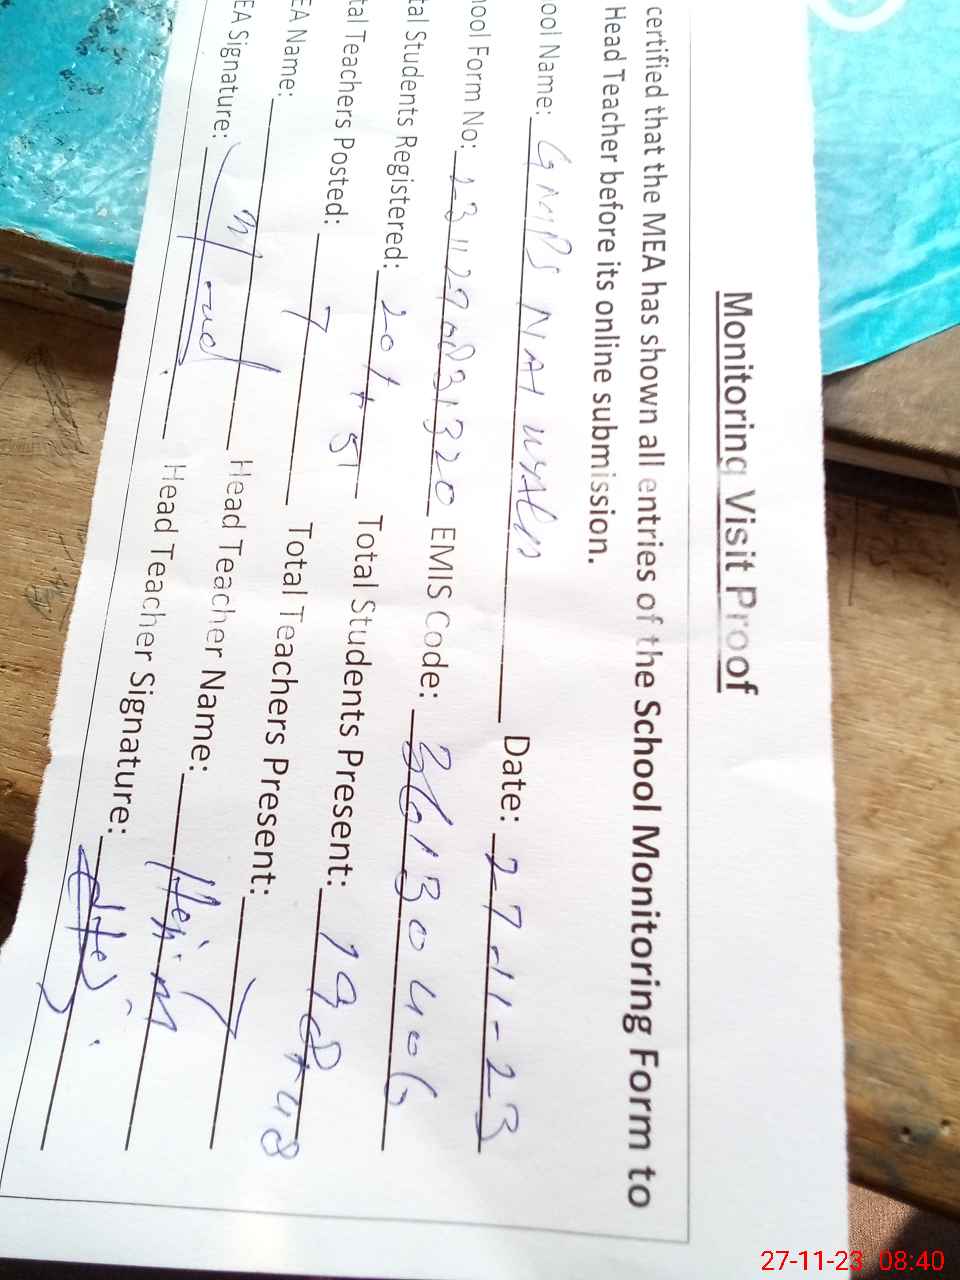 Monitoring Visit Proof
certified that the MEA has shown all entries of the School Monitoring Form to
Head Teacher before its online submission.
ool Name: GMPS NAI WALA Date: 27-11-23
hool Form No: EMIS Code: 36130406
tal Students Registered: 201+51 Total Students Present: 198+48
tal Teachers Posted: 7 Total Teachers Present: 7
EA Name: Head Teacher Name:
EA Signature: Head Teacher Signature:
27-11-23 08:40